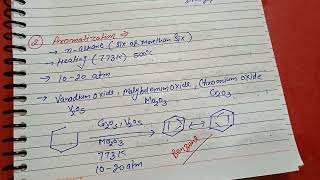 ② Aromatization →
→ n-alkane (six or more than six)
→ Heating (773K) 500°C
→ 10-20 atm
→ Vanadium oxide, Molybdenum oxide, Chromium oxide
V₂O₅ Mo₂O₃ Cr₂O₃
Cr₂O₃, V₂O₅
Mo₂O₃
773K
10-20 atm
Benzene